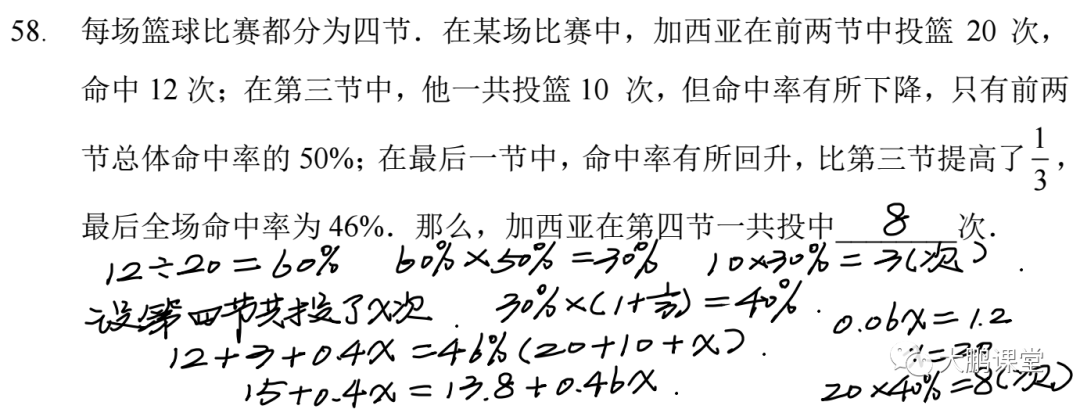 58. 每场篮球比赛都分为四节．在某场比赛中，加西亚在前两节中投篮 20 次，
命中 12 次；在第三节中，他一共投篮 10 次，但命中率有所下降，只有前两
节总体命中率的 50%；在最后一节中，命中率有所回升，比第三节提高了 1/3，
最后全场命中率为 46%．那么，加西亚在第四节一共投中 8 次．
12÷20=60% 60%×50%=30% 10×30%=3(次)
设第四节共投了x次． 30%×(1+1/3)=40%．
0.06x=1.2
12+3+0.4x=46%(20+10+x)．
x=20
大鹏课堂
15+0.4x=13.8+0.46x．
20×40%=8(次)